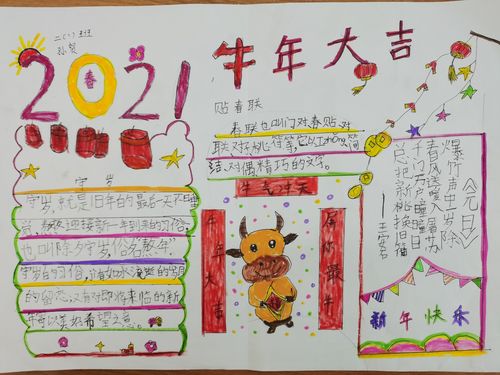 二(1)班
孙贺
2021
春
牛年大吉
贴春联
春联也叫门对春贴,对
联,对称桃符等,它以工zhěng简
洁、对偶精巧的文字。
守岁
守岁,就是旧年的最后一天不睡
迎接新一年到来的习俗,
也叫除夕守岁,俗名"熬年"
守岁的习俗,
的留恋,又有对即将来临的新
年寄以美好希望之意。
牛气冲天
牛年大吉
《元日》
爆竹声中一岁除
春风送暖入屠苏
千门万户曈曈日
总把新桃换旧符
——王安石
新年快乐